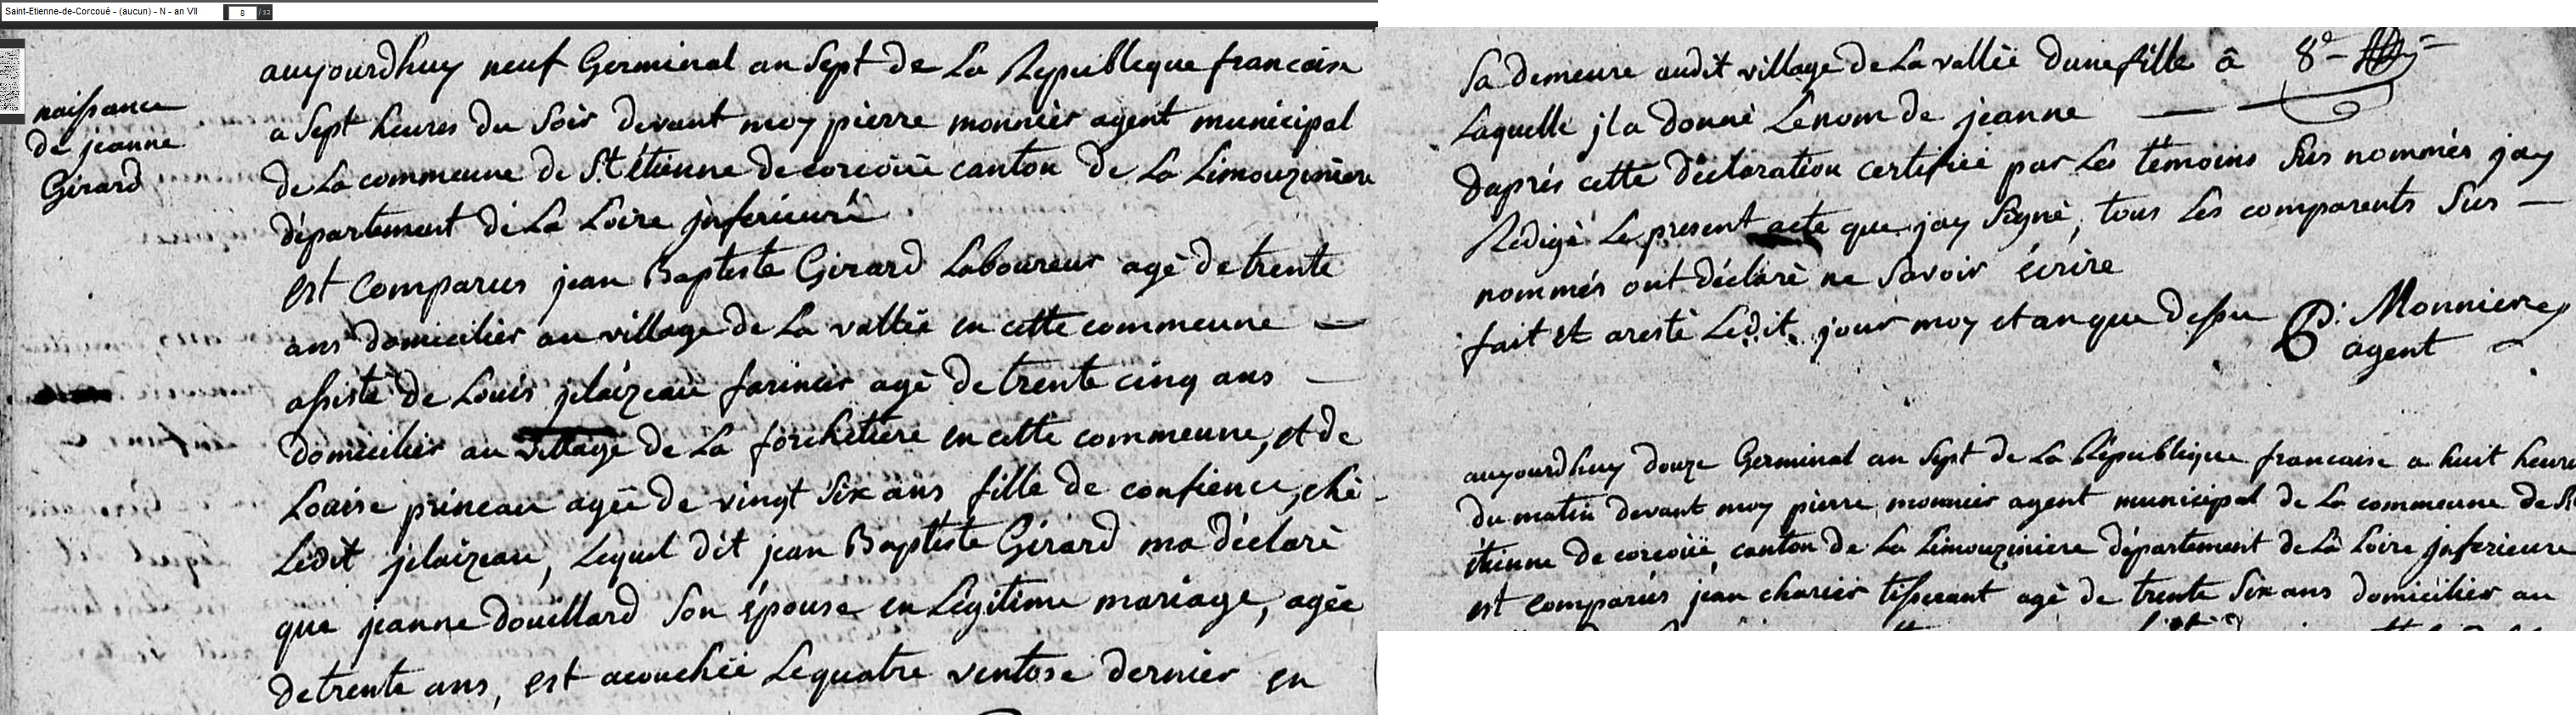 Saint-Etienne-de-Corcoué - (aucun) - N - an VII
8 / 12
naissance
de jeanne
Girard
auyourdhuy neuf Germinal an Sept de La Republeque francaise
a Sept heures du Soir devant moy pierre monnier agent municipal
de La commeune de St étienne de corcöuë canton de La Limouziniere
département dé La Loire jnferieuré
est Comparus jean Baptiste Girard Laboureur agé de trente
ans domicilier au village de La vallée en cette commeune
assisté de Louis jelaizeau farinier agé de trente cinq ans
domicilier au village de La forchetiere en cette commeune, et de
Louise princau agée de vingt Six ans fille de confience, ché
Ledit jelaizeau, Lequel dit jean Baptiste Girard ma déclaré
que jeanne douillard Son épouse en Légitime mariage, agée
de trente ans, est acouchée Le quatre ventose dernier en
Sa demeure audit village de La vallée dune fille â
8e
Laquelle jla donné Le nom de jeanne
daprés cette déclaration certifiée par Les témoins Sus nommés jay
Redigé Le present acte que jay Signé, tous Les comparents Sus
nommés ont déclaré ne Savoir écrire
fait et aresté Ledit jour moy et an que dessu
P. Monnier
agent
auyourdhuy douze Germinal an Sept de La République francaise a huit heure
du matin devant moy pierre monnier agent municipal de La commeune de St
étienne de corcoüé, canton de La Limouziniere département de La Loire jnferieure
est comparus jean charier tisserant agé de trente Six ans domicilier au